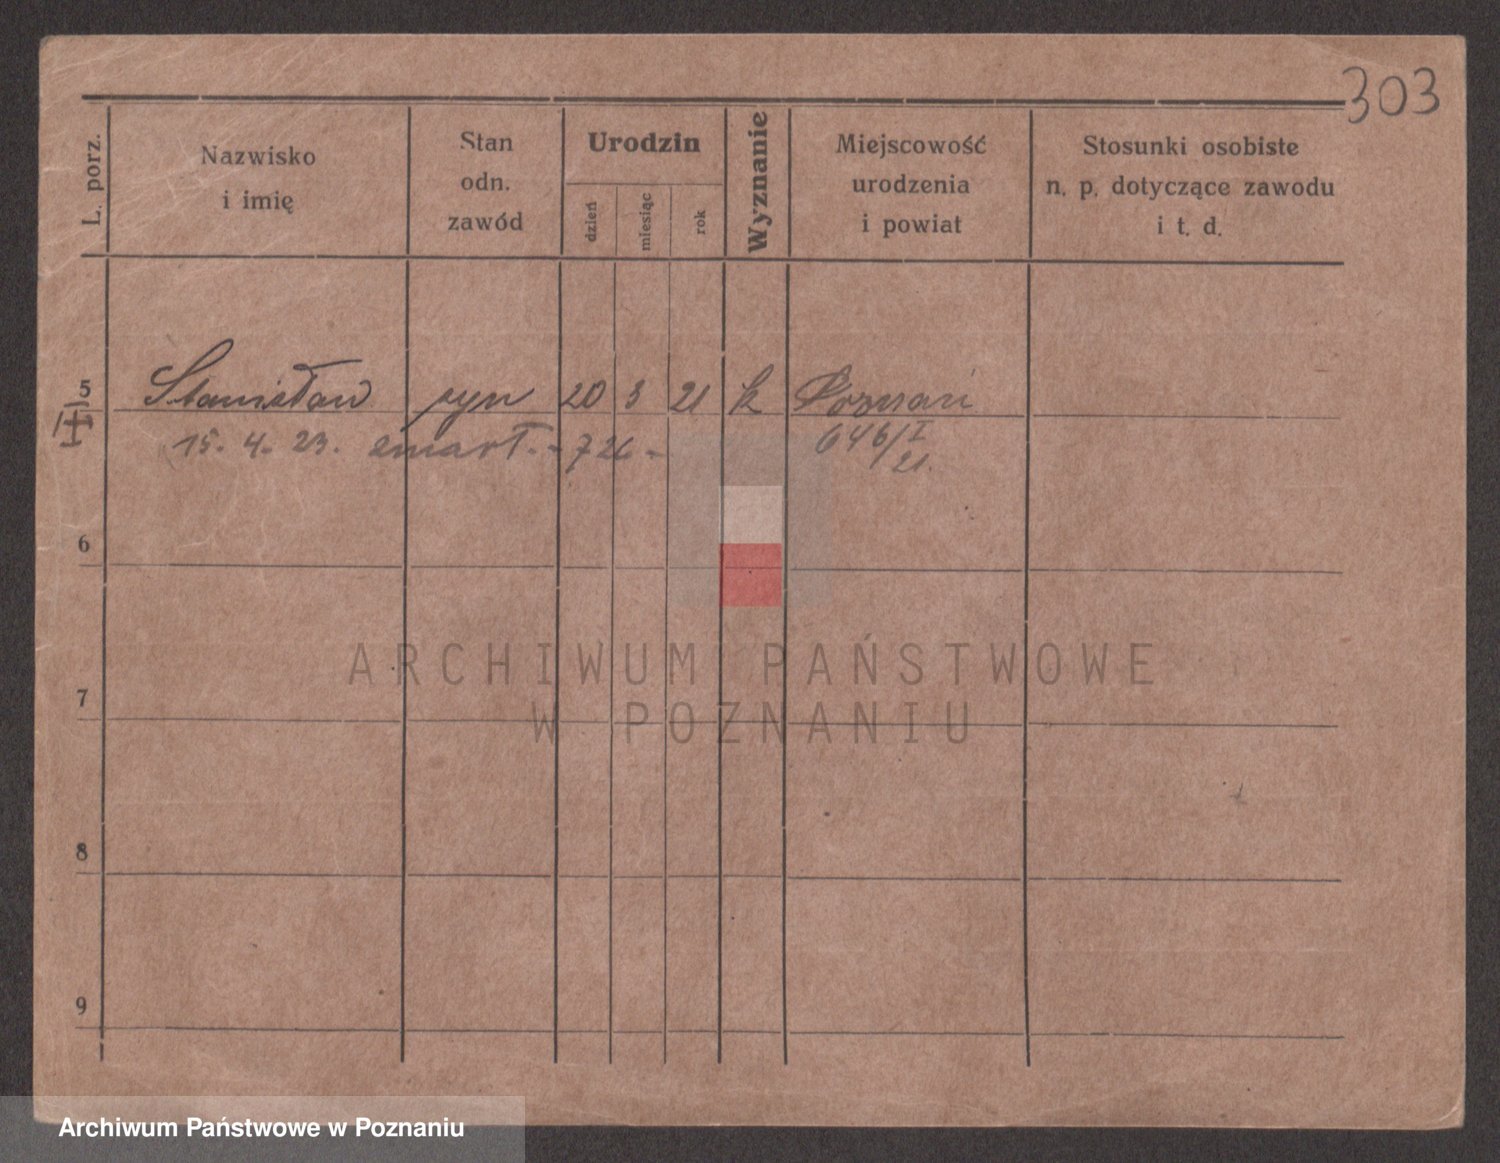 303
L. porz.
Nazwisko
i imię
Stan
odn.
zawód
Urodzin
dzień
miesiąc
rok
Wyznanie
Miejscowość
urodzenia
i powiat
Stosunki osobiste
n. p. dotyczące zawodu
i t. d.
5 Stanisław syn 20 3 21 k Poznań
15. 4. 23. zmarł. - 726 -
646/I
21.
6
ARCHIWUM PAŃSTWOWE
7
W POZNANIU
8
9
Archiwum Państwowe w Poznaniu